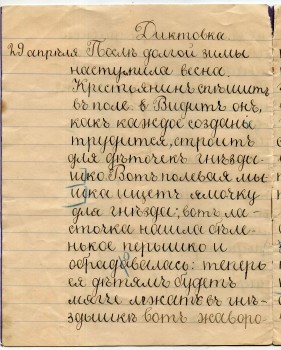 Диктовка.
29 апрѣля Послѣ долгой зимы
наступила весна.
Крестьянинъ спѣшитъ
въ поле. Видитъ онъ,
какъ каждое созданье
трудится, строитъ
для дѣточекъ гнѣзды-
шко. Вотъ полевая мы
шка ищетъ ямочку
для гнѣзда; вотъ ла-
сточка нашла бѣле-
нькое перышко и
обрадовалась: теперь
ея дѣтямъ будетъ
мягче лежать въ гнѣ-
здышкѣ вотъ жаворо-